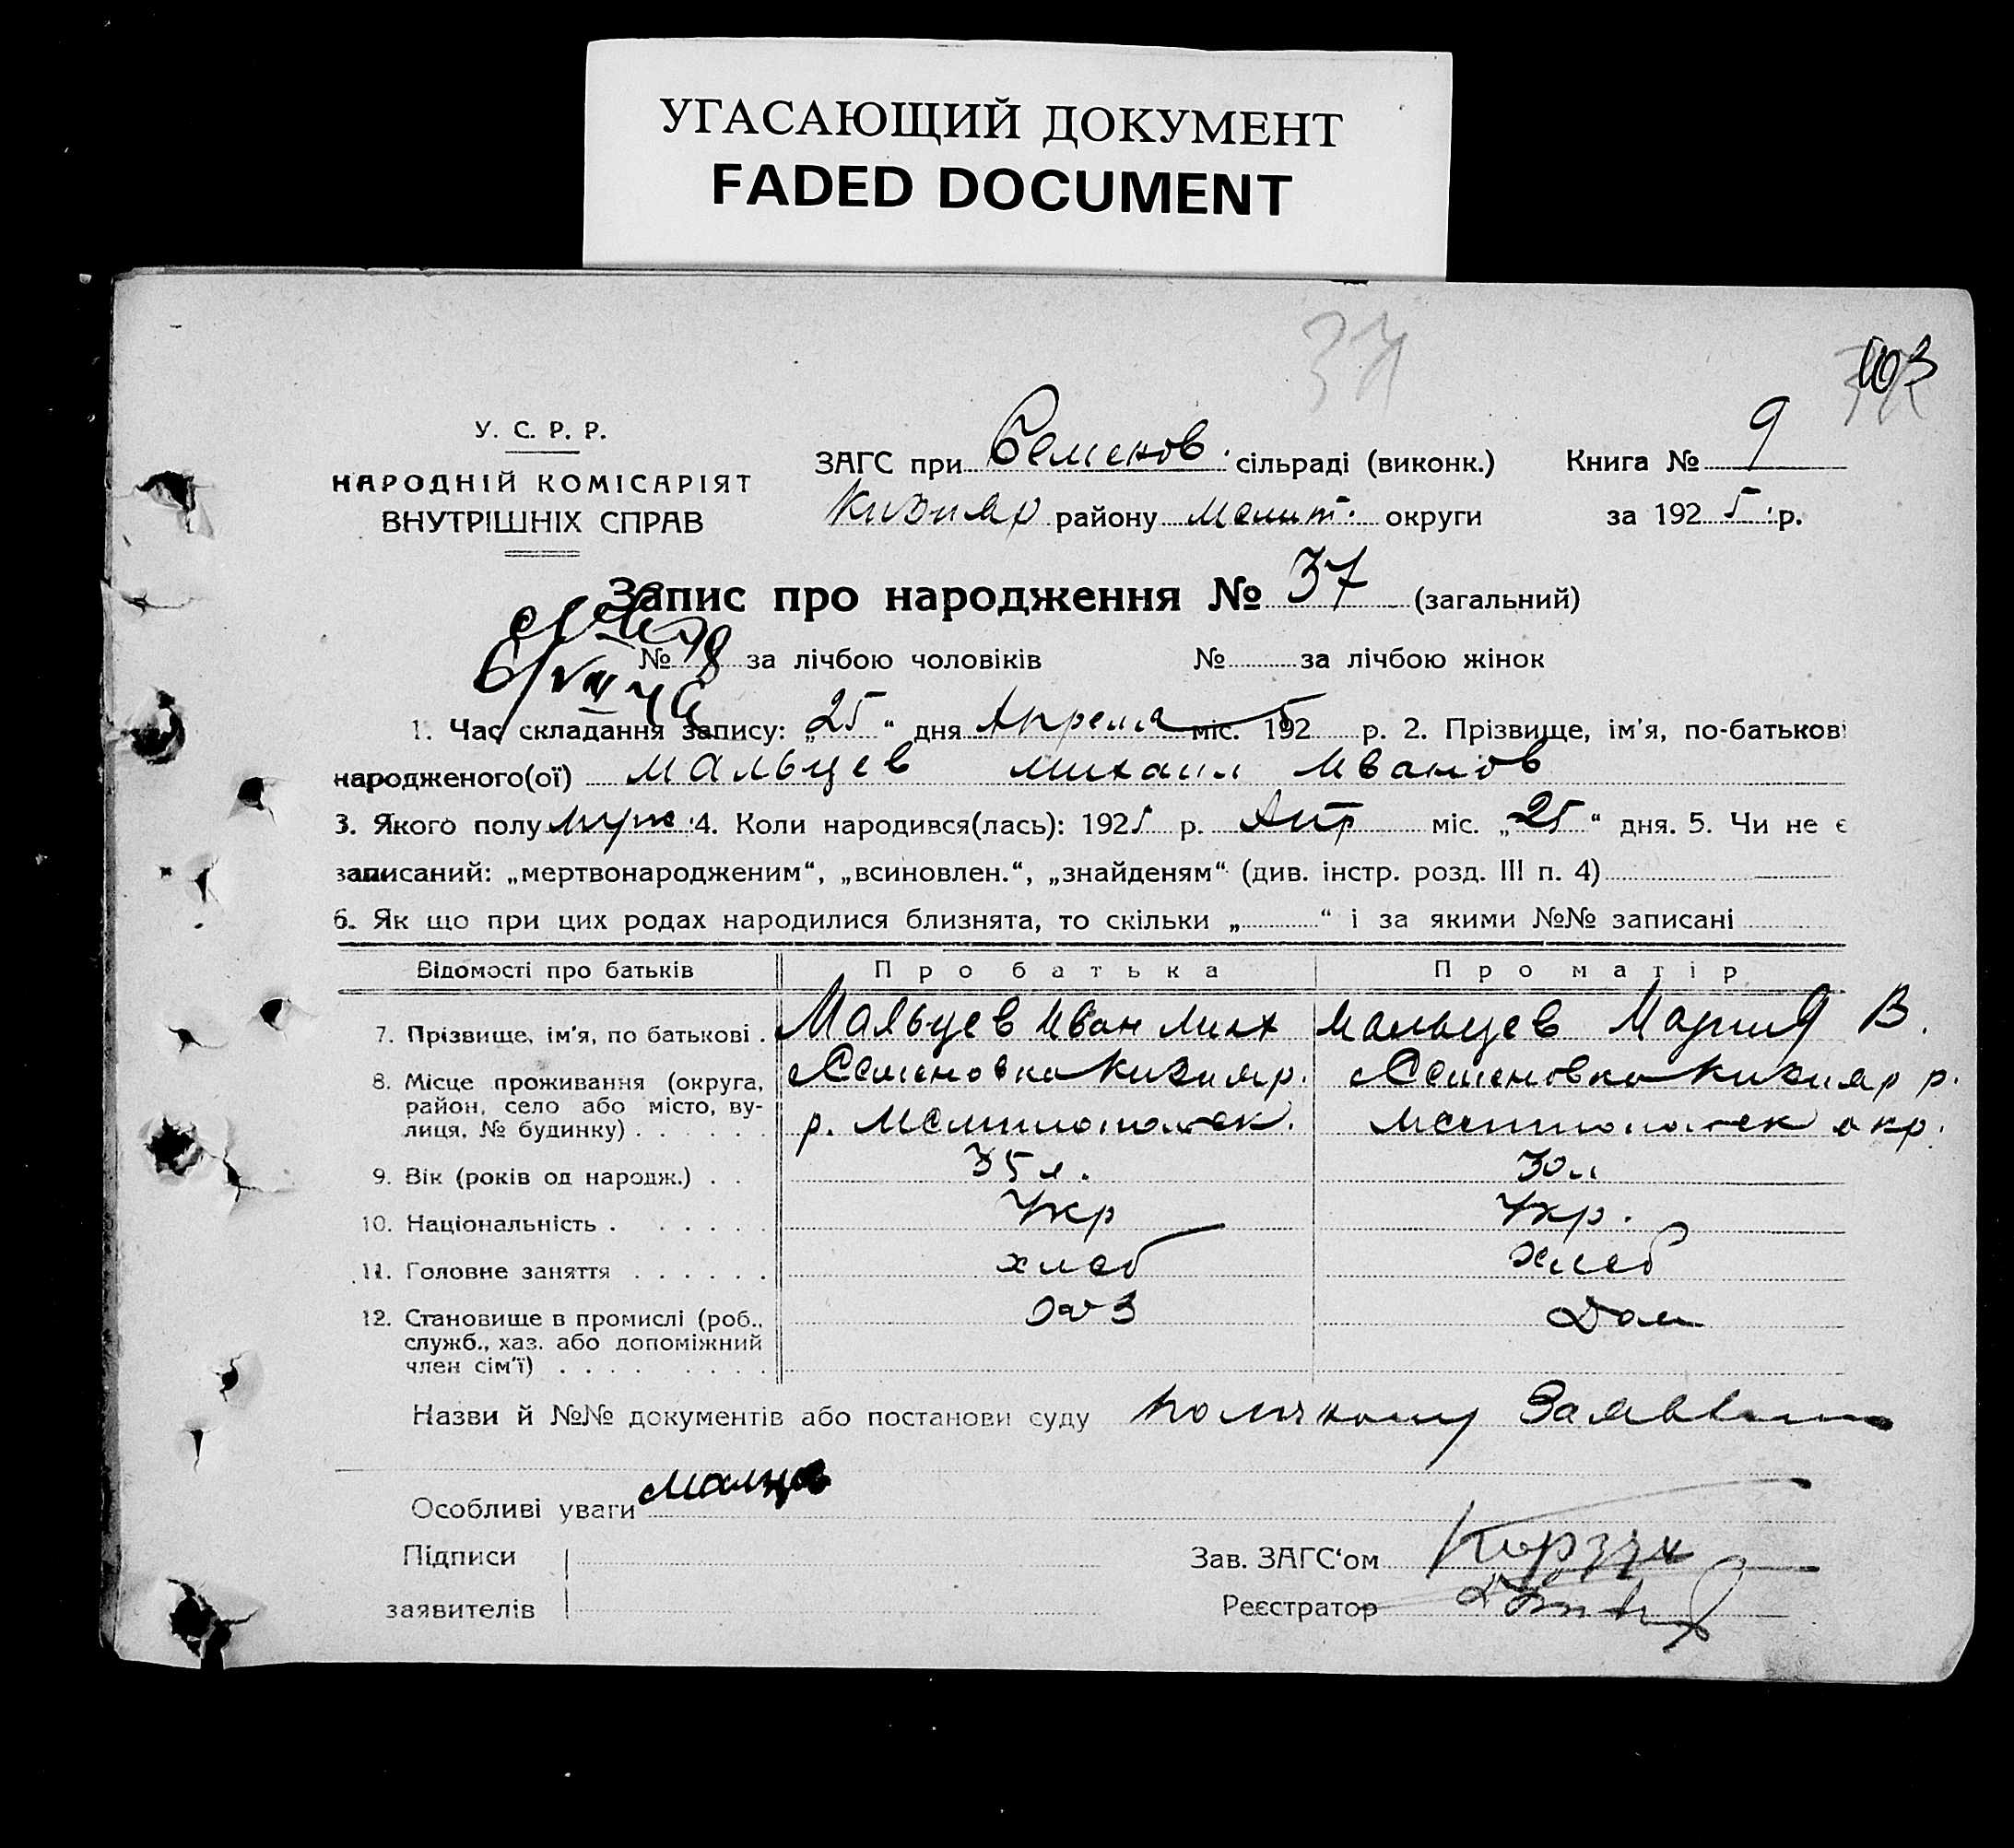 УГАСАЮЩИЙ ДОКУМЕНТ
FADED DOCUMENT
37
103
У. С. Р. Р.
НАРОДНІЙ КОМІСАРІЯТ
ВНУТРІШНІХ СПРАВ
ЗАГС при Семенов. сільраді (виконк.) Книга № 9
Кизияр району Мелит. округи за 1925 р.
Запис про народження № 37 (загальний)
№ 18 за лічбою чоловіків № за лічбою жінок
1. Час складання запису: „25“ дня Апреля міс. 1925 р. 2. Прізвище, ім'я, по-батькові
народженого(ої) Мальцев Михаил Иванов
3. Якого полу муж. 4. Коли народився(лась): 1925 р. Апр міс. „25“ дня. 5. Чи не є
записаний: „мертвонародженим“, „всиновлен.“, „знайденям“ (див. інстр. розд. III п. 4)
6. Як що при цих родах народилися близнята, то скільки „ “ і за якими №№ записані
Відомості про батьків Про батька Про матір
7. Прізвище, ім'я, по батькові . Мальцев Иван Мих Мальцев Мария В.
8. Місце проживання (округа, район, село або місто, вулиця, № будинку) Семеновка Кизияр. р. Мелитопольск. Семеновка Кизияр р. Мелитопольск окр.
9. Вік (років од народж.) . . 35 л. 30 л
10. Національність . Укр Укр.
11. Головне заняття хлеб хлеб
12. Становище в промислі (роб., служб., хаз. або допоміжний член сім'ї) хоз Дом
Назви й №№ документів або постанови суду по личному Заявлению
Особливі уваги
Підписи Зав. ЗАГС'ом
заявителів Реєстратор